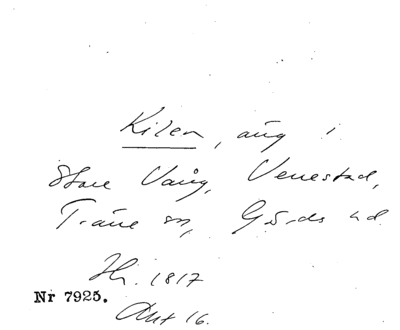 Kilen, äng i
Store Vång, Venestad,
Träne sn, Gärds hd
Hr. 1817
Nr 7925.
Akt 16.